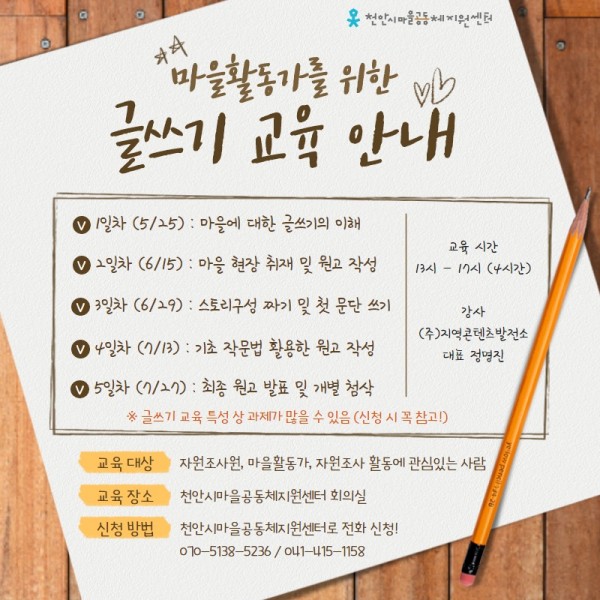 천안시마을공동체지원센터
마을활동가를 위한
글쓰기 교육 안내
V 1일차 (5/25) : 마을에 대한 글쓰기의 이해
V 2일차 (6/15) : 마을 현장 취재 및 원고 작성
V 3일차 (6/29) : 스토리구성 짜기 및 첫 문단 쓰기
V 4일차 (7/13) : 기초 작문법 활용한 원고 작성
V 5일차 (7/27) : 최종 원고 발표 및 개별 첨삭
교육 시간
13시 - 17시 (4시간)
강사
(주)지역콘텐츠발전소
대표 정명진
※ 글쓰기 교육 특성 상 과제가 많을 수 있음 (신청 시 꼭 참고!)
교육 대상 자원조사원, 마을활동가, 자원조사 활동에 관심있는 사람
교육 장소 천안시마을공동체지원센터 회의실
신청 방법 천안시마을공동체지원센터로 전화 신청!
070-5138-5236 / 041-415-1158